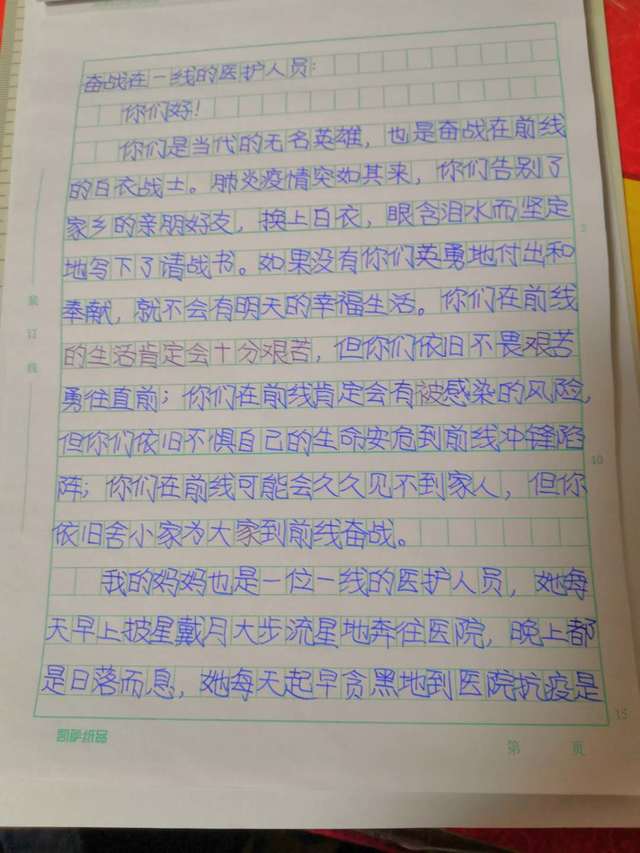 奋战在一线的医护人员：
你们好！
你们是当代的无名英雄，也是奋战在前线
的白衣战士。肺炎疫情突如其来，你们告别了
家乡的亲朋好友，换上白衣，眼含泪水而坚定
地写下了请战书。如果没有你们英勇地付出和
奉献，就不会有明天的幸福生活。你们在前线
的生活肯定会十分艰苦，但你们依旧不畏艰苦
勇往直前；你们在前线肯定会有被感染的风险，
但你们依旧不惧自己的生命安危到前线冲锋陷
阵；你们在前线可能会久久见不到家人，但你
依旧舍小家为大家到前线奋战。
我的妈妈也是一位一线的医护人员，她每
天早上披星戴月大步流星地奔往医院，晚上都
是日落而息，她每天起早贪黑地到医院抗疫是
装
订
线
5
10
15
凯萨纸品
第 页